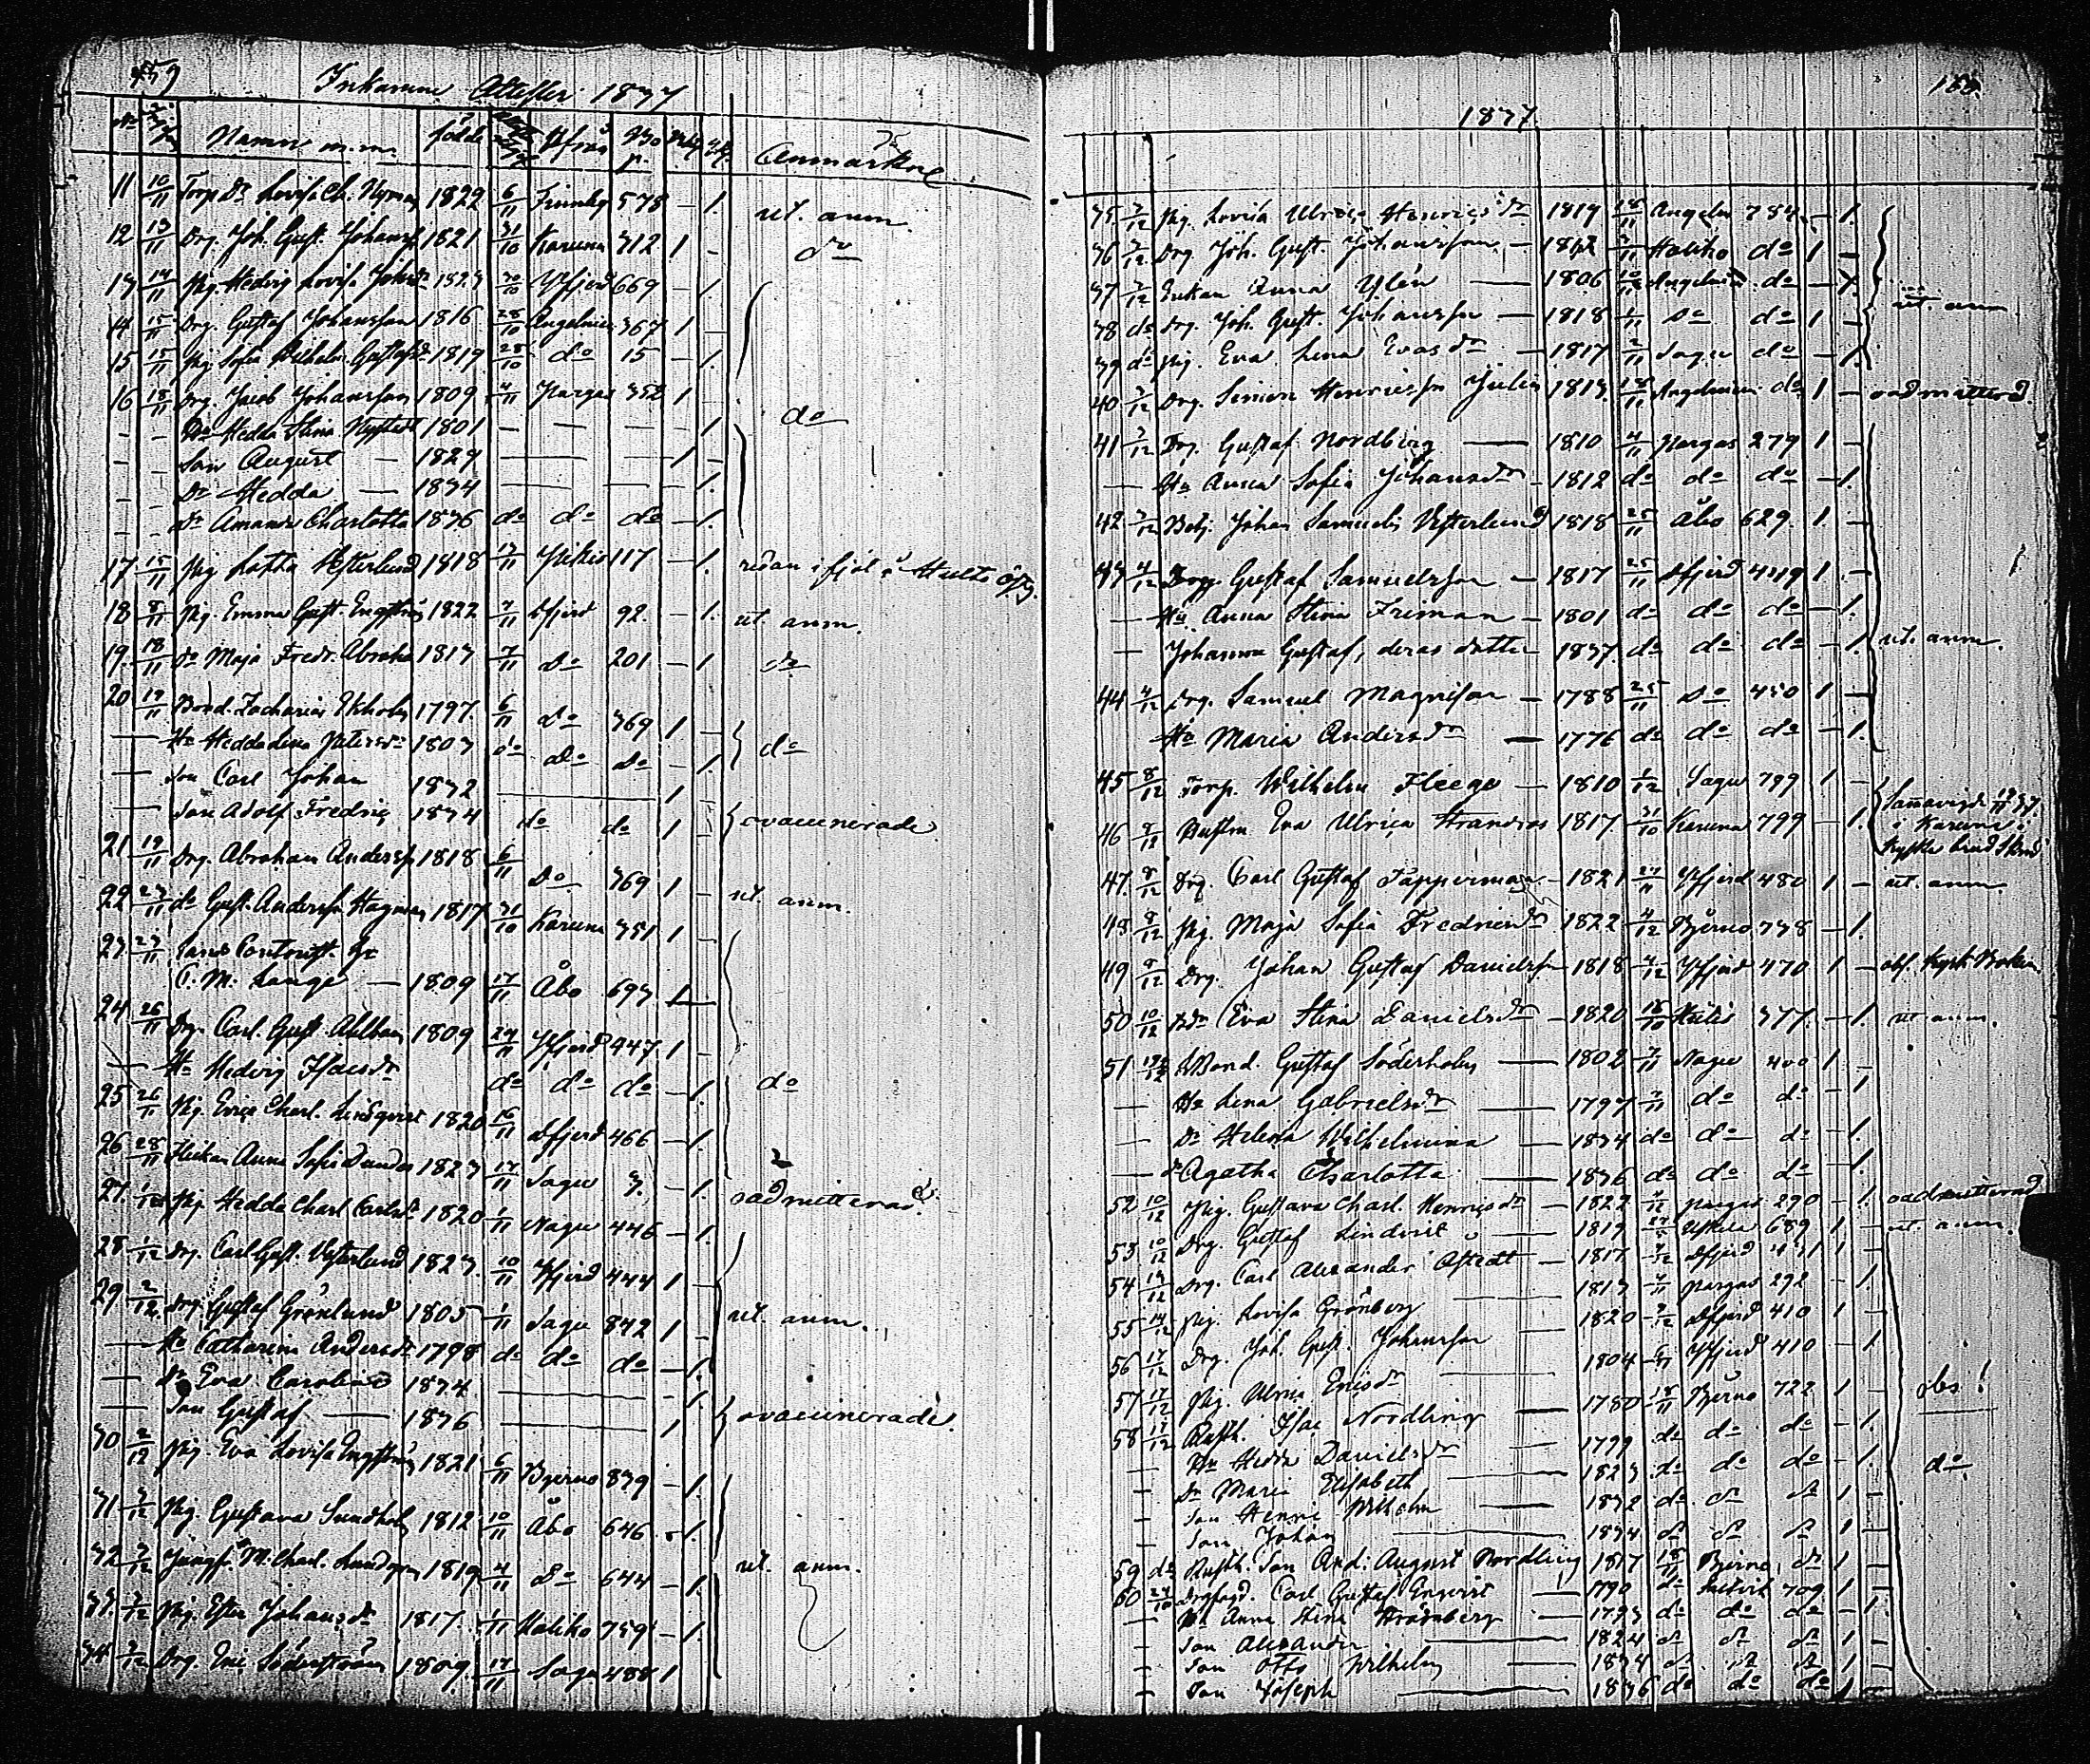 159
Inkomne Attester 1837
No Namn m.m. född Ifrån Anmärkn
11 10/11 Torp. Dr Lovisa Ch. Nyman 1822 6/11 Finnby 578 – 1. ut. anm.
12 13/11 Drg. Joh. Gust. Johanss 1821 31/10 Karuna 312 1 – do
13 14/11 Pig. Hedvig Lovisa Johsdr 1823 30/10 Pfjerd 669 – 1.
14 15/11 Drg. Gustaf Johansson 1816 28/10 Angelnie 367 1 –
15 15/11 Pig. Sofia Wilhelm. Gustafsdr 1819 28/10 do 15 – 1.
16 18/11 Drg. Jacob Johansson 1809 4/11 Pargas 352 1 do
– – Hu Hedda Stina 1801 – – – – 1
– – Son August – 1829 1 –
– – Dr Hedda – 1834 – 1.
– – Dr Amanda Charlotta 1836 do do do – 1.
17 15/11 Pig Lotta Westerlund 1818 13/11 Pikis 117 – 1. redan i fjol i
18 8/11 Pig. Emma Gust. Engström 1822 7/11 Ofjerd 92. – 1. ut. anm.
19. 18/11 do Maja Fredr. Abraha 1813 7/11 do 201 – 1 do
20 19/11 Bond. Zacharias Ekholm 1797. 6/11 do 369 1 –
— Hu Hedda Lena Petersdr 1803 do do do – 1. do
— Son Carl Johan 1832 1
— Son Adolf Fredric 1834 do do 1 ovaccinerade
21 19/11 Drg. Abraham Anderss 1818 6/11 do 369 1 –
22 23/11 do Gust. Anderss Hagman 1817 31/10 Karuna 351 1 ut. anm.
23. 23/11
C. M. Lange — 1809 17/11 Åbo 693 1
24 26/11 Drg. Carl Gust. Ahlbom 1809 24/11 Pfjerd 447 1 –
— Hu Hedvig Isacsdr do do do – 1. do
25 26/11 Pig. Erica Charl. Lindqvist 1820 16/11 Ofjerd 466 – 1.
26 28/11 Flickan Anna Sofia 1823 17/11 Sagu 3. – 1.
27. 1/12 Pig. Hedda Charl Carlsdr 1820 1/11 Nagu 446 – 1. oadmitterad.
28 1/12 Drg. Carl Gust. Westerlund 1823. 10/11 Pfjerd 444 1 –
29 2/12 Drg Gustaf Grönlund 1805 1/11 Sagu 842 1 ut. anm.
— Hu Catharina Andersdr 1798 do do do – 1.
— Dr Eva Carolina 1834 – 1
— Son Gustaf — 1836 1 ovaccinerade.
30 2/12 Pig. Eva Lovisa Engström 1821 6/11 Bjerno 839 – 1.
31 2/12 Pig. Gustava Sundholm 1812 10/11 Åbo 646 . 1.
32 2/12 Jungfr. M. Charl. Lundgren 1819 4/11 do 644 – 1. ut. anm.
33. 2/12 Pig. Ester Johansdr 1817. 1/11 Haliko 759 – 1.
34 2/12 Drg. Eric Söderström 1809. 17/11 Sagu 488 1
160.
1837
35 2/12 Pig. Lovisa Ulrica Henricsdr 1819 18/11 Angeln 784 – 1.
36 2/12 Drg. Joh. Gust. Johansson – 1812 2/11 Haliko do 1 –
37 2/12 Enkan Anna Ylén — 1806 10/11 Angelnie do – 1. ut. anm
38 do Drg. Joh. Gust. Johansson – 1818 1/11 do do 1 –
39 do Pig. Eva Lena Evasdr – 1817 2/11 Sagu do – 1.
40 2/12 Drg. Simon Henricsson Julin 1813. 18/11 Angelniemi do 1 – oadmitterad.
41 2/12 Drg. Gustaf Nordberg — 1810 4/11 Pargas 279 1 –
— Hu Anna Sofia Johansdr – 1812 do do do – 1.
42 2/12 Betj. Johan Samuels Westerlund 1818 25/11 Åbo 629. 1. –
43 4/12 Drg. Gustaf Samuelsson – 1817 25/11 Ofjerd 449 1. –
— Hu Anna Stina Friman – 1801 do do do – 1.
— Johanna Gustaf, deras dotter 1837. do do do – 1 ut. anm.
44 4/12 Drg. Samuel Magnisson – 1788 25/11 do 450 1 –
Hu Maria Andersdr — 1776 do do do – 1.
45 8/12 Torp. Wilhelm Fleege – 1810 1/12 Sagu 799 1 –
46 8/12 Eva Ulrica 1817. 31/10 Karuna 799 – 1. i Karuna
47. 8/12 Drg. Carl Gustaf Tapperman 1821 27/11 Pfjerd 480 1 – ut. anm
48 8/12 Pig. Maja Sofia Fredricsdr – 1822 4/12 Bjerno 738 – 1.
49 8/12 Drg. Johan Gustaf Danielss 1818 4/12 Pfjerd 470 1 –
50 10/12 Eva Stina Danielsdr – 1820 16/10 377 – 1. ut anm.
51 Bond. Gustaf Söderholm — 1802 7/11 Nagu 400 1 –
— Hu Lena Gabrielsdr — 1797 7/11 do do – 1
— Dr Helena Wilhelmina — 1834 do do do – 1.
— Dr Agatha Charlotta — 1836 do do do – 1.
52 10/12 Pig. Gustava Charl. Henricsdr – 1822 4/12 Pargas 290 – 1. oadmitterad
53 10/12 Drg. Gustaf Lindqvist — 1819 689 1 – ut. anm.
54 14/12 Drg. Carl Alexander Åstedt – 1817. Ofjerd 1 –
55 14/12 Pig. Lovisa Grönberg — 1813 Pargas 292 – 1.
56 17/12 Drg. Joh. Gust. Johansson — 1820 Ofjerd 410 1 –
57 17/12 Pig. Ulrica Ericsdr — 1804 Pfjerd 410 – 1
58 17/12 Rusth. Isac Nordling — 1780 18/11 Bjerno 722 1 – obs!
— Hu Hedda Danielsdr — 1799 do do do – 1.
– Dr Maria Elisabeth — 1823. do do do – 1. do
– Son Henric Wilhelm — 1832 do do do 1.
– Son Johan — 1834 do do do 1 –
59 do Rusth. Son And. August Nordling 1817 18/11 Bjerno do 1 –
60 Carl Gustaf Enqvist — 1790 do 709 1 –
— Hu Anna Stina Strömberg — 1793 do do do – 1.
– Son Alexander — 1824 do do do 1 –
– Son Otto Wilhelm — 1834 do do do 1 –
– Son Joseph — 1836 do do do 1 –